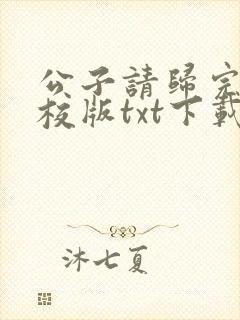 公子請歸完
校版txt下載
沐七夏